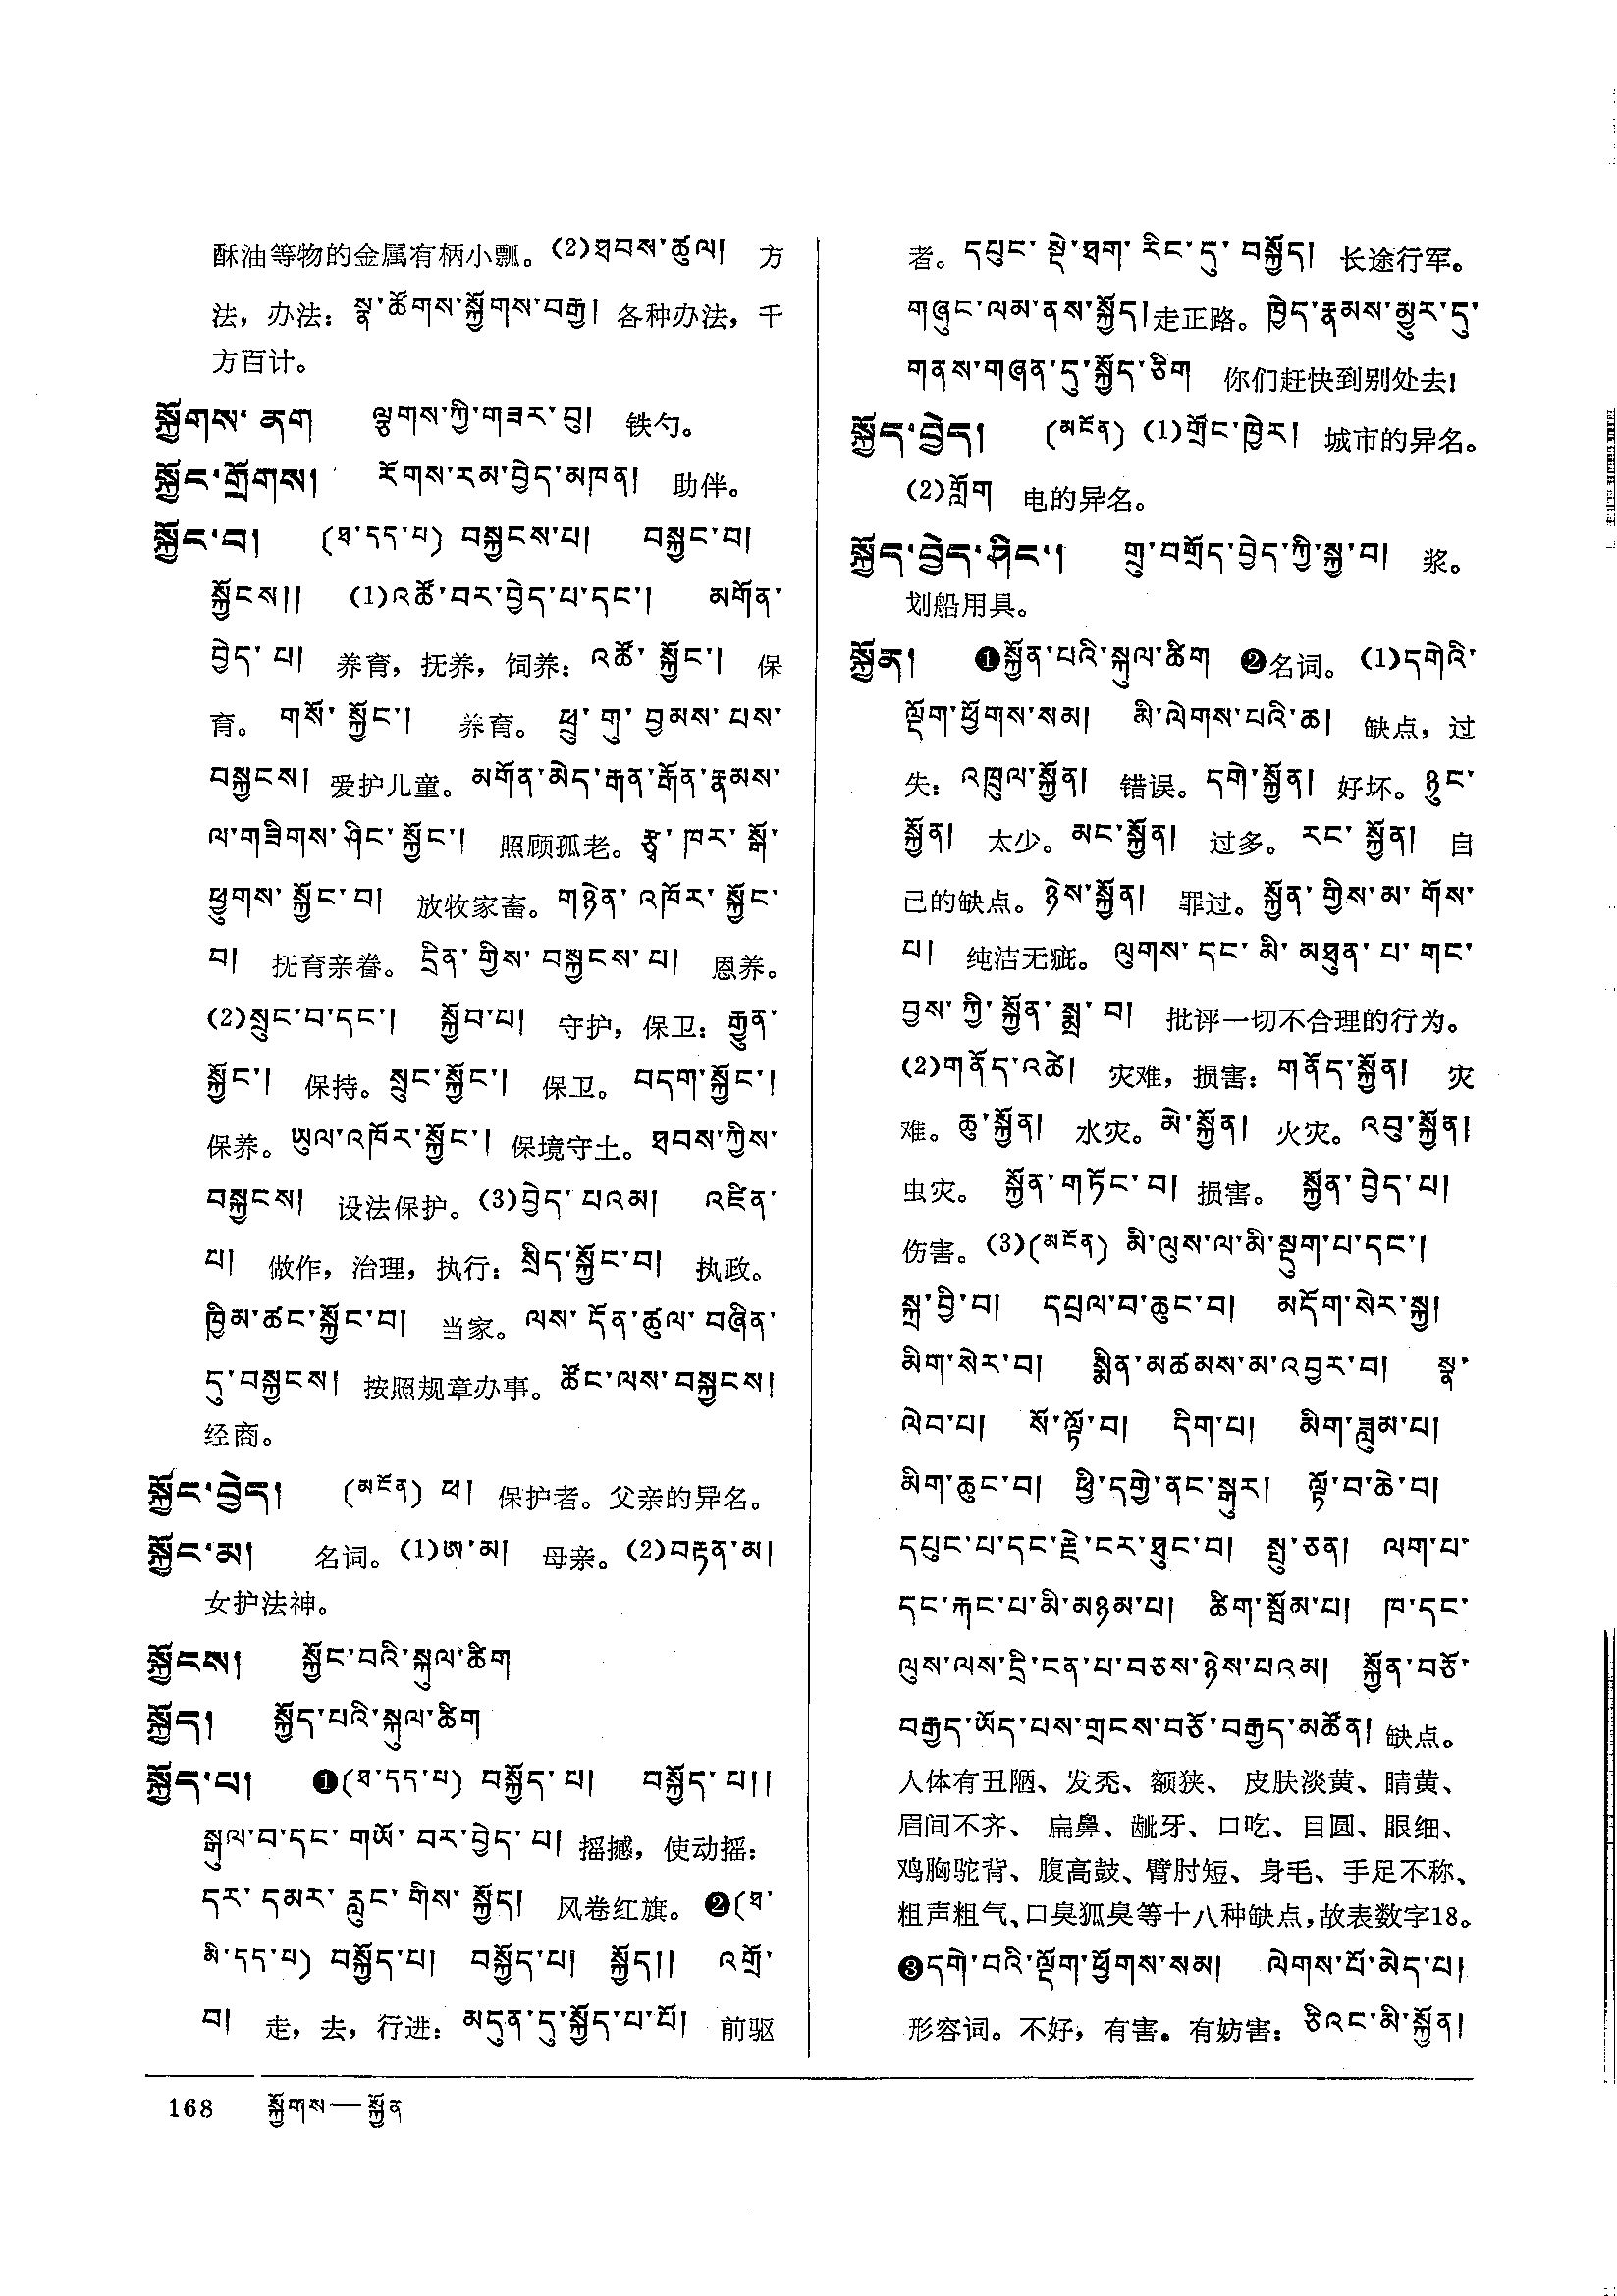 酥油等物的金属有柄小瓢。(2)ཐབས་ཚུལ། 方
法，办法：སྣ་ཚོགས་སྐྱོགས་བརྒྱ། 各种办法，千
方百计。
སྐྱོགས་ནག ལྕགས་ཀྱི་གཟར་བུ། 铁勺。
སྐྱོང་གྲོགས། རོགས་རམ་བྱེད་མཁན། 助伴。
སྐྱོང་བ། (ཐ་དད་པ) བསྐྱངས་པ། བསྐྱང་བ།
སྐྱོངས།། (1)འཚོ་བར་བྱེད་པ་དང་། མགོན་
བྱེད་པ། 养育，抚养，饲养：འཚོ་སྐྱོང་། 保
育。 གསོ་སྐྱོང་། 养育。 ཕྲུ་གུ་བྱམས་པས་
བསྐྱངས། 爱护儿童。མགོན་མེད་རྒན་རྒོན་རྣམས་
ལ་གཟིགས་ཤིང་སྐྱོང་། 照顾孤老。རྩྭ་ཁར་སྒོ་
ཕྱུགས་སྐྱོང་བ། 放牧家畜。གཉེན་འཁོར་སྐྱོང་
བ། 抚育亲眷。 དྲིན་གྱིས་བསྐྱངས་པ། 恩养。
(2)སྲུང་བ་དང་། སྐྱོབ་པ། 守护，保卫：རྒྱུན་
སྐྱོང་། 保持。སྲུང་སྐྱོང་། 保卫。 བདག་སྐྱོང་།
保养。ཡུལ་འཁོར་སྐྱོང་། 保境守土。ཐབས་ཀྱིས་
བསྐྱངས། 设法保护。(3)བྱེད་པའམ། འཛིན་
པ། 做作，治理，执行：སྲིད་སྐྱོང་བ། 执政。
ཁྱིམ་ཚང་སྐྱོང་བ། 当家。ལས་དོན་ཚུལ་བཞིན་
དུ་བསྐྱངས། 按照规章办事。ཚོང་ལས་བསྐྱངས།
经商。
སྐྱོང་བྱེད། (མངོན) ཕ། 保护者。父亲的异名。
སྐྱོང་མ། 名词。(1)ཨ་མ། 母亲。(2)བརྟན་མ།
女护法神。
སྐྱོངས། སྐྱོང་བའི་སྐུལ་ཚིག
སྐྱོད། སྐྱོད་པའི་སྐུལ་ཚིག
སྐྱོད་པ། ❶(ཐ་དད་པ) བསྐྱོད་པ། བསྐྱོད་པ།།
སྒུལ་བ་དང་གཡོ་བར་བྱེད་པ། 摇撼，使动摇：
དར་དམར་རླུང་གིས་སྐྱོད། 风卷红旗。❷(ཐ་
མི་དད་པ) བསྐྱོད་པ། བསྐྱོད་པ། སྐྱོད།། འགྲོ་
བ། 走，去，行进：མདུན་དུ་སྐྱོད་པ་པོ། 前驱
者。དཔུང་སྡེ་ཐག་རིང་དུ་བསྐྱོད། 长途行军。
གཞུང་ལམ་ནས་སྐྱོད། 走正路。ཁྱེད་རྣམས་མྱུར་དུ་
གནས་གཞན་དུ་སྐྱོད་ཅིག 你们赶快到别处去！
སྐྱོད་བྱེད། (མངོན) (1)གྲོང་ཁྱེར། 城市的异名。
(2)གློག 电的异名。
སྐྱོད་བྱེད་ཤིང་། གྲུ་བགྲོད་བྱེད་ཀྱི་སྐྱ་བ། 桨。
划船用具。
སྐྱོན། ❶སྐྱོན་པའི་སྐུལ་ཚིག ❷名词。(1)དགེའི་
ལྡོག་ཕྱོགས་སམ། མི་ལེགས་པའི་ཆ། 缺点，过
失：འཁྲུལ་སྐྱོན། 错误。དགེ་སྐྱོན། 好坏。ཉུང་
སྐྱོན། 太少。མང་སྐྱོན། 过多。རང་སྐྱོན། 自
己的缺点。ཉེས་སྐྱོན། 罪过。སྐྱོན་གྱིས་མ་གོས་
པ། 纯洁无疵。ལུགས་དང་མི་མཐུན་པ་གང་
བྱས་ཀྱི་སྐྱོན་སྨྲ་བ། 批评一切不合理的行为。
(2)གནོད་འཚེ། 灾难，损害：གནོད་སྐྱོན། 灾
难。ཆུ་སྐྱོན། 水灾。མེ་སྐྱོན། 火灾。འབུ་སྐྱོན།
虫灾。 སྐྱོན་གཏོང་བ། 损害。 སྐྱོན་བྱེད་པ།
伤害。(3)(མངོན) མི་ལུས་ལ་མི་སྡུག་པ་དང་།
སྐྲ་བྱི་བ། དཔྲལ་བ་ཆུང་བ། མདོག་སེར་སྐྱ།
མིག་སེར་བ། སྨིན་མཚམས་མ་འབྱར་བ། སྣ་
ལེབ་པ། སོ་ལྟོ་བ། དིག་པ། མིག་ཟླུམ་པ།
མིག་ཆུང་བ། ཕྱི་དགྱེ་ནང་སྒུར། ལྟོ་བ་ཆེ་བ།
དཔུང་པ་དང་རྗེ་ངར་ཐུང་བ། སྤུ་ཅན། ལག་པ་
དང་རྐང་པ་མི་མཉམ་པ། ཚིག་སྦོམ་པ། ཁ་དང་
ལུས་ལས་དྲི་ངན་པ་བཅས་ཉེས་པའམ། སྐྱོན་བཅོ་
བརྒྱད་ཡོད་པས་གྲངས་བཅོ་བརྒྱད་མཚོན། 缺点。
人体有丑陋、发秃、额狭、皮肤淡黄、睛黄、
眉间不齐、扁鼻、龇牙、口吃、目圆、眼细、
鸡胸驼背、腹高鼓、臂肘短、身毛、手足不称、
粗声粗气、口臭狐臭等十八种缺点，故表数字18。
❸དགེ་བའི་ལྡོག་ཕྱོགས་སམ། ལེགས་པོ་མེད་པ།
形容词。不好，有害。有妨害：ཅིའང་མི་སྐྱོན།
168 སྐྱོགས—སྐྱོན